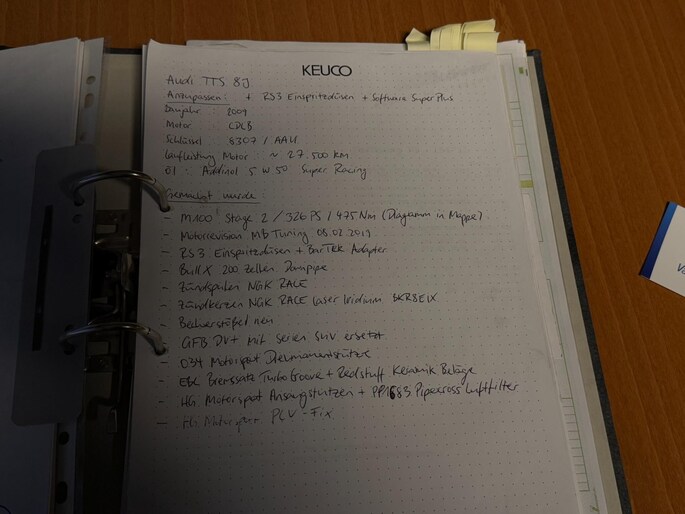 KEUCO
Audi TTS 8J
Anzupassen: + RS3 Einspritzdüsen + Software Super Plus
Baujahr : 2009
Motor : CDLB
Schlüssel : 8307 / AAU
Laufleistung Motor : ~ 27.500 km
Öl : Addinol 5W50 Super Racing
Gemacht wurde :
- M100 Stage 2 / 326 PS / 475 Nm (Diagramm in Mappe)
- Motorrevision MB Tuning 08.02.2019
- RS3 Einspritzdüsen + BarTek Adapter
- Bull X 200 Zellen Downpipe
- Zündspulen NGK RACE
- Zündkerzen NGK RACE Laser Iridium BKR8EIX
- Becherstößel neu
- GFB DV+ mit Serien SUV ersetzt
- 034 Motorsport Drehmomentstütze
- EBC Bremssatz Turbo Groove + Redstuff Keramik Beläge
- HG Motorsport Ansaugstutzen + PP1683 Pipercross Luftfilter
- HG Motorsport PCV-Fix